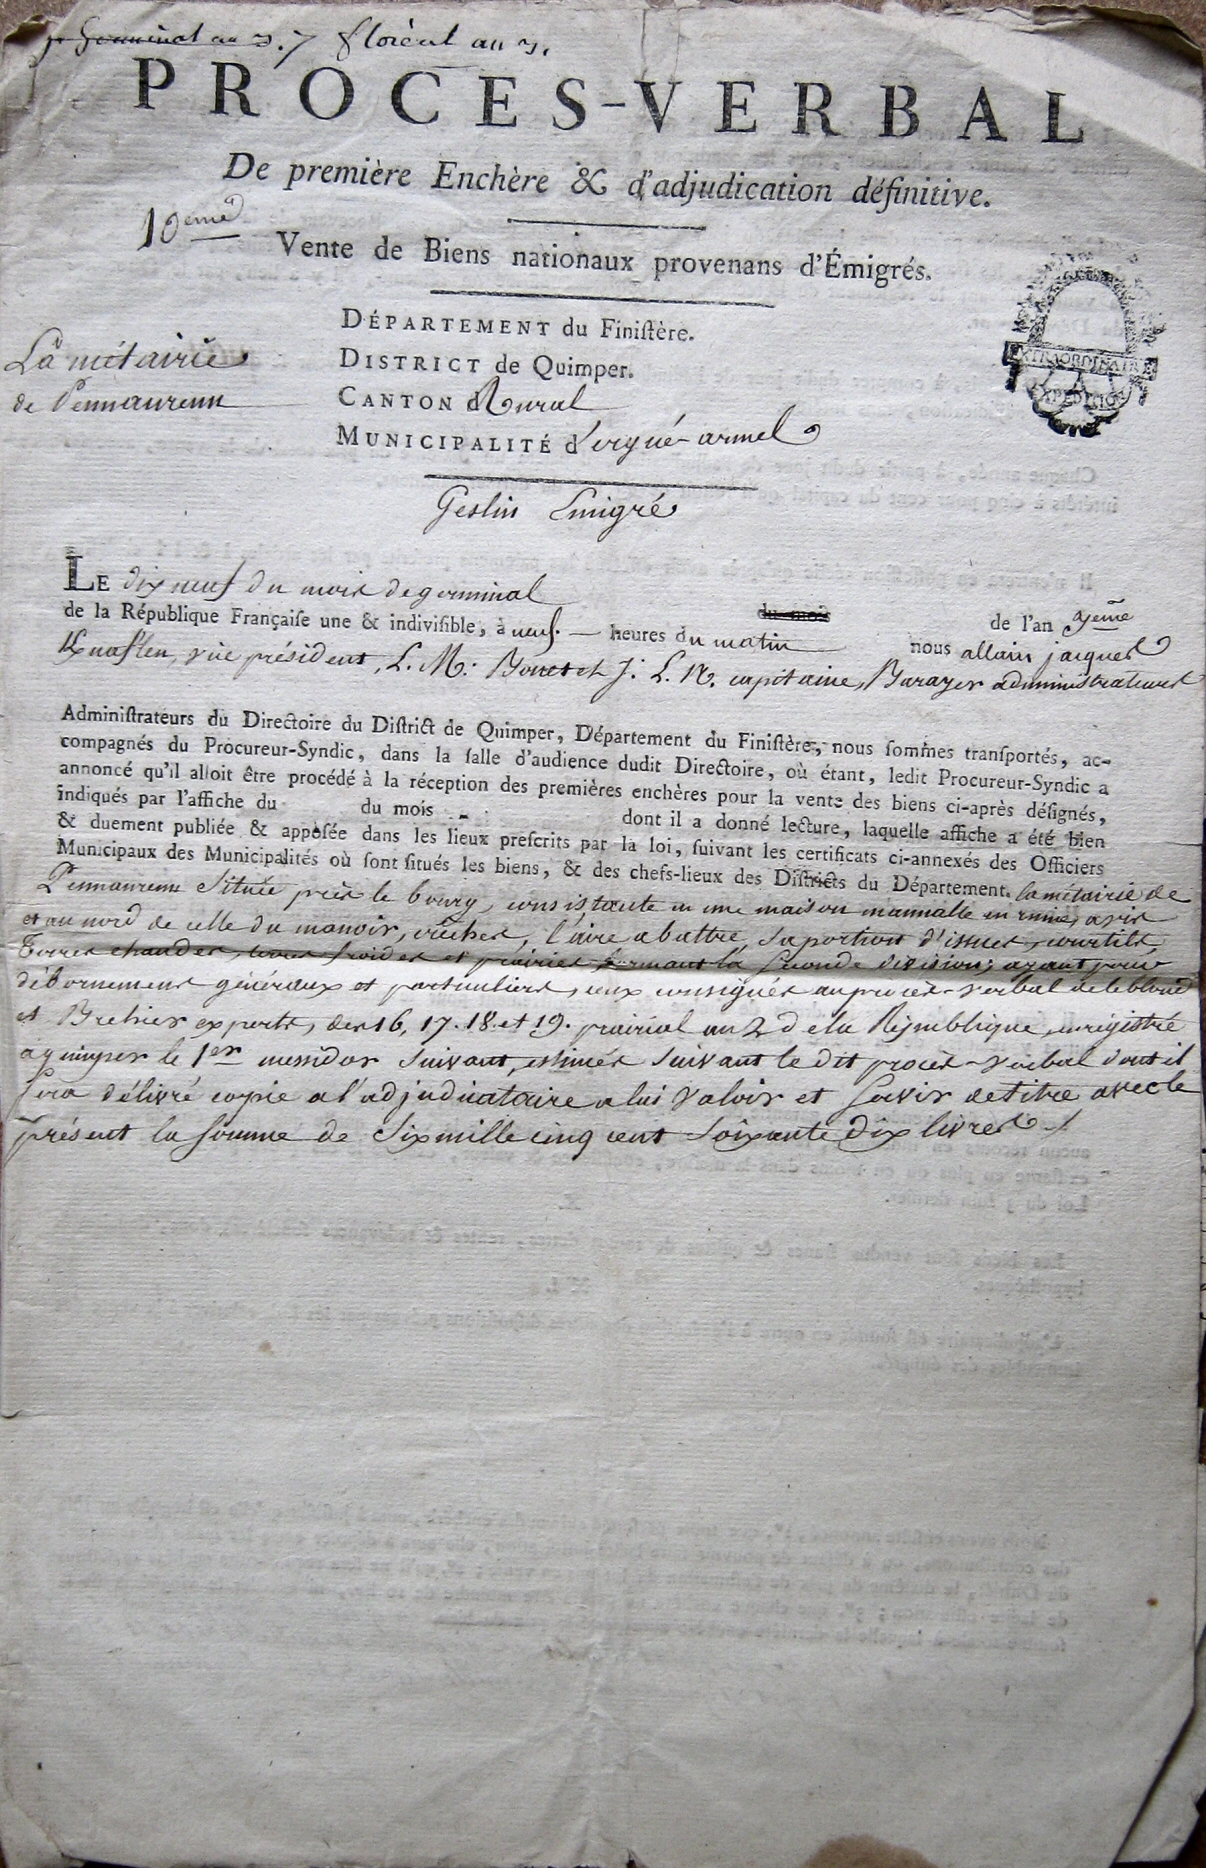 germinal an 3. 7 floréal an 3.
PROCES-VERBAL
De première Enchère & d'adjudication définitive.
10eme
Vente de Biens nationaux provenans d'Émigrés.
EXTRAORDINAIRE
EXPEDITION
La métairie
de Pennaurenn
DÉPARTEMENT du Finistère.
DISTRICT de Quimper.
CANTON Rural
MUNICIPALITÉ d'ergué-armel
Geslin Emigré
LE dix neuf du mois de germinal du mois de l'an 3eme
de la République Française une & indivisible, à neuf heures du matin nous allain jacques
vice président, L. M. et J. L. N. capitaine, administrateurs
Administrateurs du Directoire du District de Quimper, Département du Finistère, nous sommes transportés, ac-
compagnés du Procureur-Syndic, dans la salle d'audience dudit Directoire, où étant, ledit Procureur-Syndic a
annoncé qu'il alloit être procédé à la réception des premières enchères pour la vente des biens ci-après désignés,
indiqués par l'affiche du du mois dont il a donné lecture, laquelle affiche a été bien
& duement publiée & apposée dans les lieux prescrits par la loi, suivant les certificats ci-annexés des Officiers
Municipaux des Municipalités où sont situés les biens, & des chefs-lieux des Districts du Département. la métairie de
Pennaurenn située près le bourg, consistante en une maison mannalle en ruine, avis
et au nord de celle du manoir, crèches, l'aire a battre, sa portion d'issues, courtils,
Terres chaudes, terres froides et prairies formant la seconde division; ayant pour
débornements généraux et particuliers, ceux consignés au procès-verbal de leblond
et Brehier experts, des 16, 17. 18. et 19. prairial an 2 de la République, enrégistré
a quimper le 1er messidor suivant, estimés suivant le dit procès-verbal dont il
sera délivré copie a l'adjudicataire a lui valoir et servir de titre avec le
présent la somme de Six mille cinq cent soixante dix livres